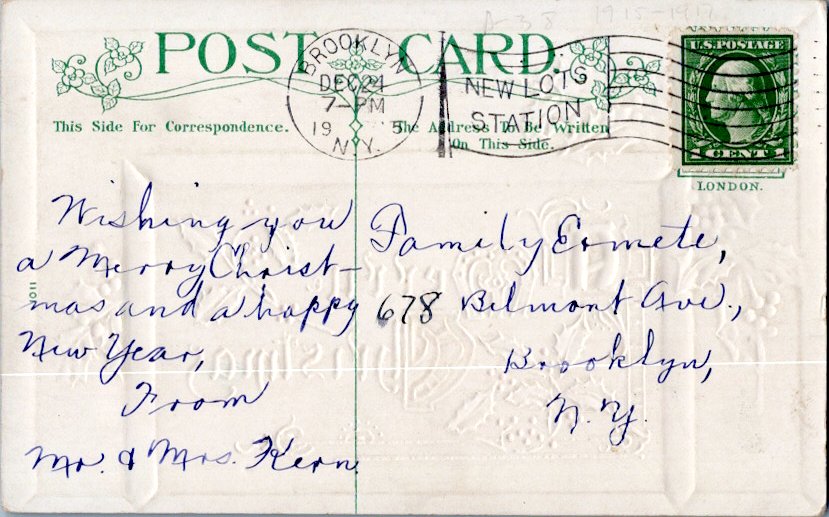 A-38 1915-1917
POST CARD.
BROOKLYN
DEC 24
7-PM
19 5
N.Y.
NEW LOTS
STATION
U.S. POSTAGE
1 CENT 1
LONDON.
This Side For Correspondence.
The Address To Be Written
On This Side.
Wishing you
a Merry Christ-
mas and a happy
New Year,
From
Mr. & Mrs. Kern.
Family Ermete,
678 Belmont Ave.,
Brooklyn,
N.Y.
1101